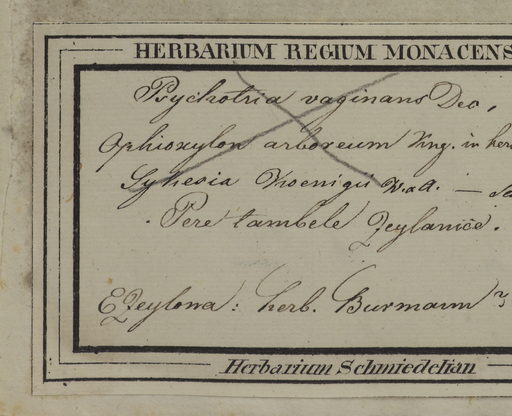 HERBARIUM REGIUM MONACENS
Psychotria vaginans Dec,
Ophioxylon arboreum Kng. in her
Sykesia Koenigii W. & A. —
Pere tambele Zeylanice.
E Zeylona: herb. Burmann
Herbarium Schmiedelian